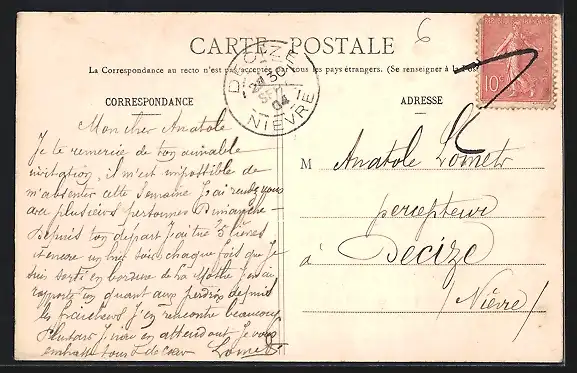 6
CARTE POSTALE
La Correspondance au recto n'est pas acceptée par tous les pays étrangers. (Se renseigner à la Poste)
CORRESPONDANCE
ADRESSE
DECIZE
30
SEPT
04
NIÈVRE
10c
Mon cher Anatole
Je te remercie de ton aimable
invitation, il m'est impossible de
m'absenter cette Semaine J'ai rendez vous
avec plusieurs personnes Dimanche
Depuis ton départ J'ai tué 5 lièvres
et encore un hier soir chaque fois que Je
suis sorti en bordure de La Mothe J'en ai
rapporté un quant aux perdrix depuis
les fraicheurs J'en rencontre beaucoup
J'irai en attendant Je vous
embrasse tous de cœur
M Anatole
percepteur
à Decize
(Nièvre)